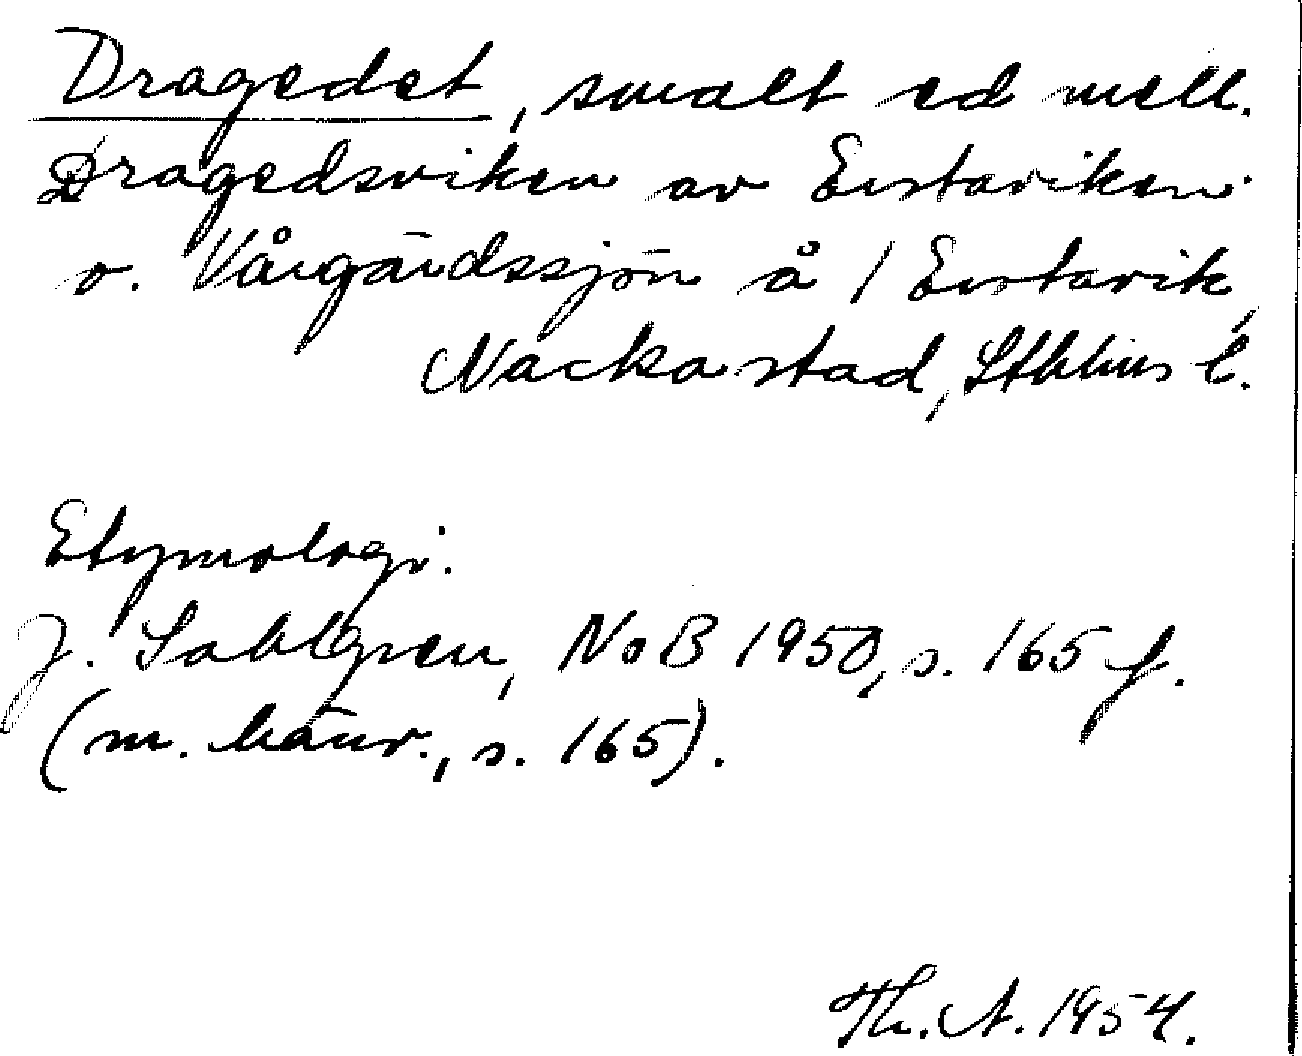 Dragedet, smalt ed mell.
Dragedsviken av Erstaviken
o. Vårgärdssjön å 1 Erstavik,
Nacka stad, Sthlms l.
Etymologi.
J. Sahlgren, NoB 1950, s. 165 f.
(m. hänv., s. 165).
Th. A. 1954.